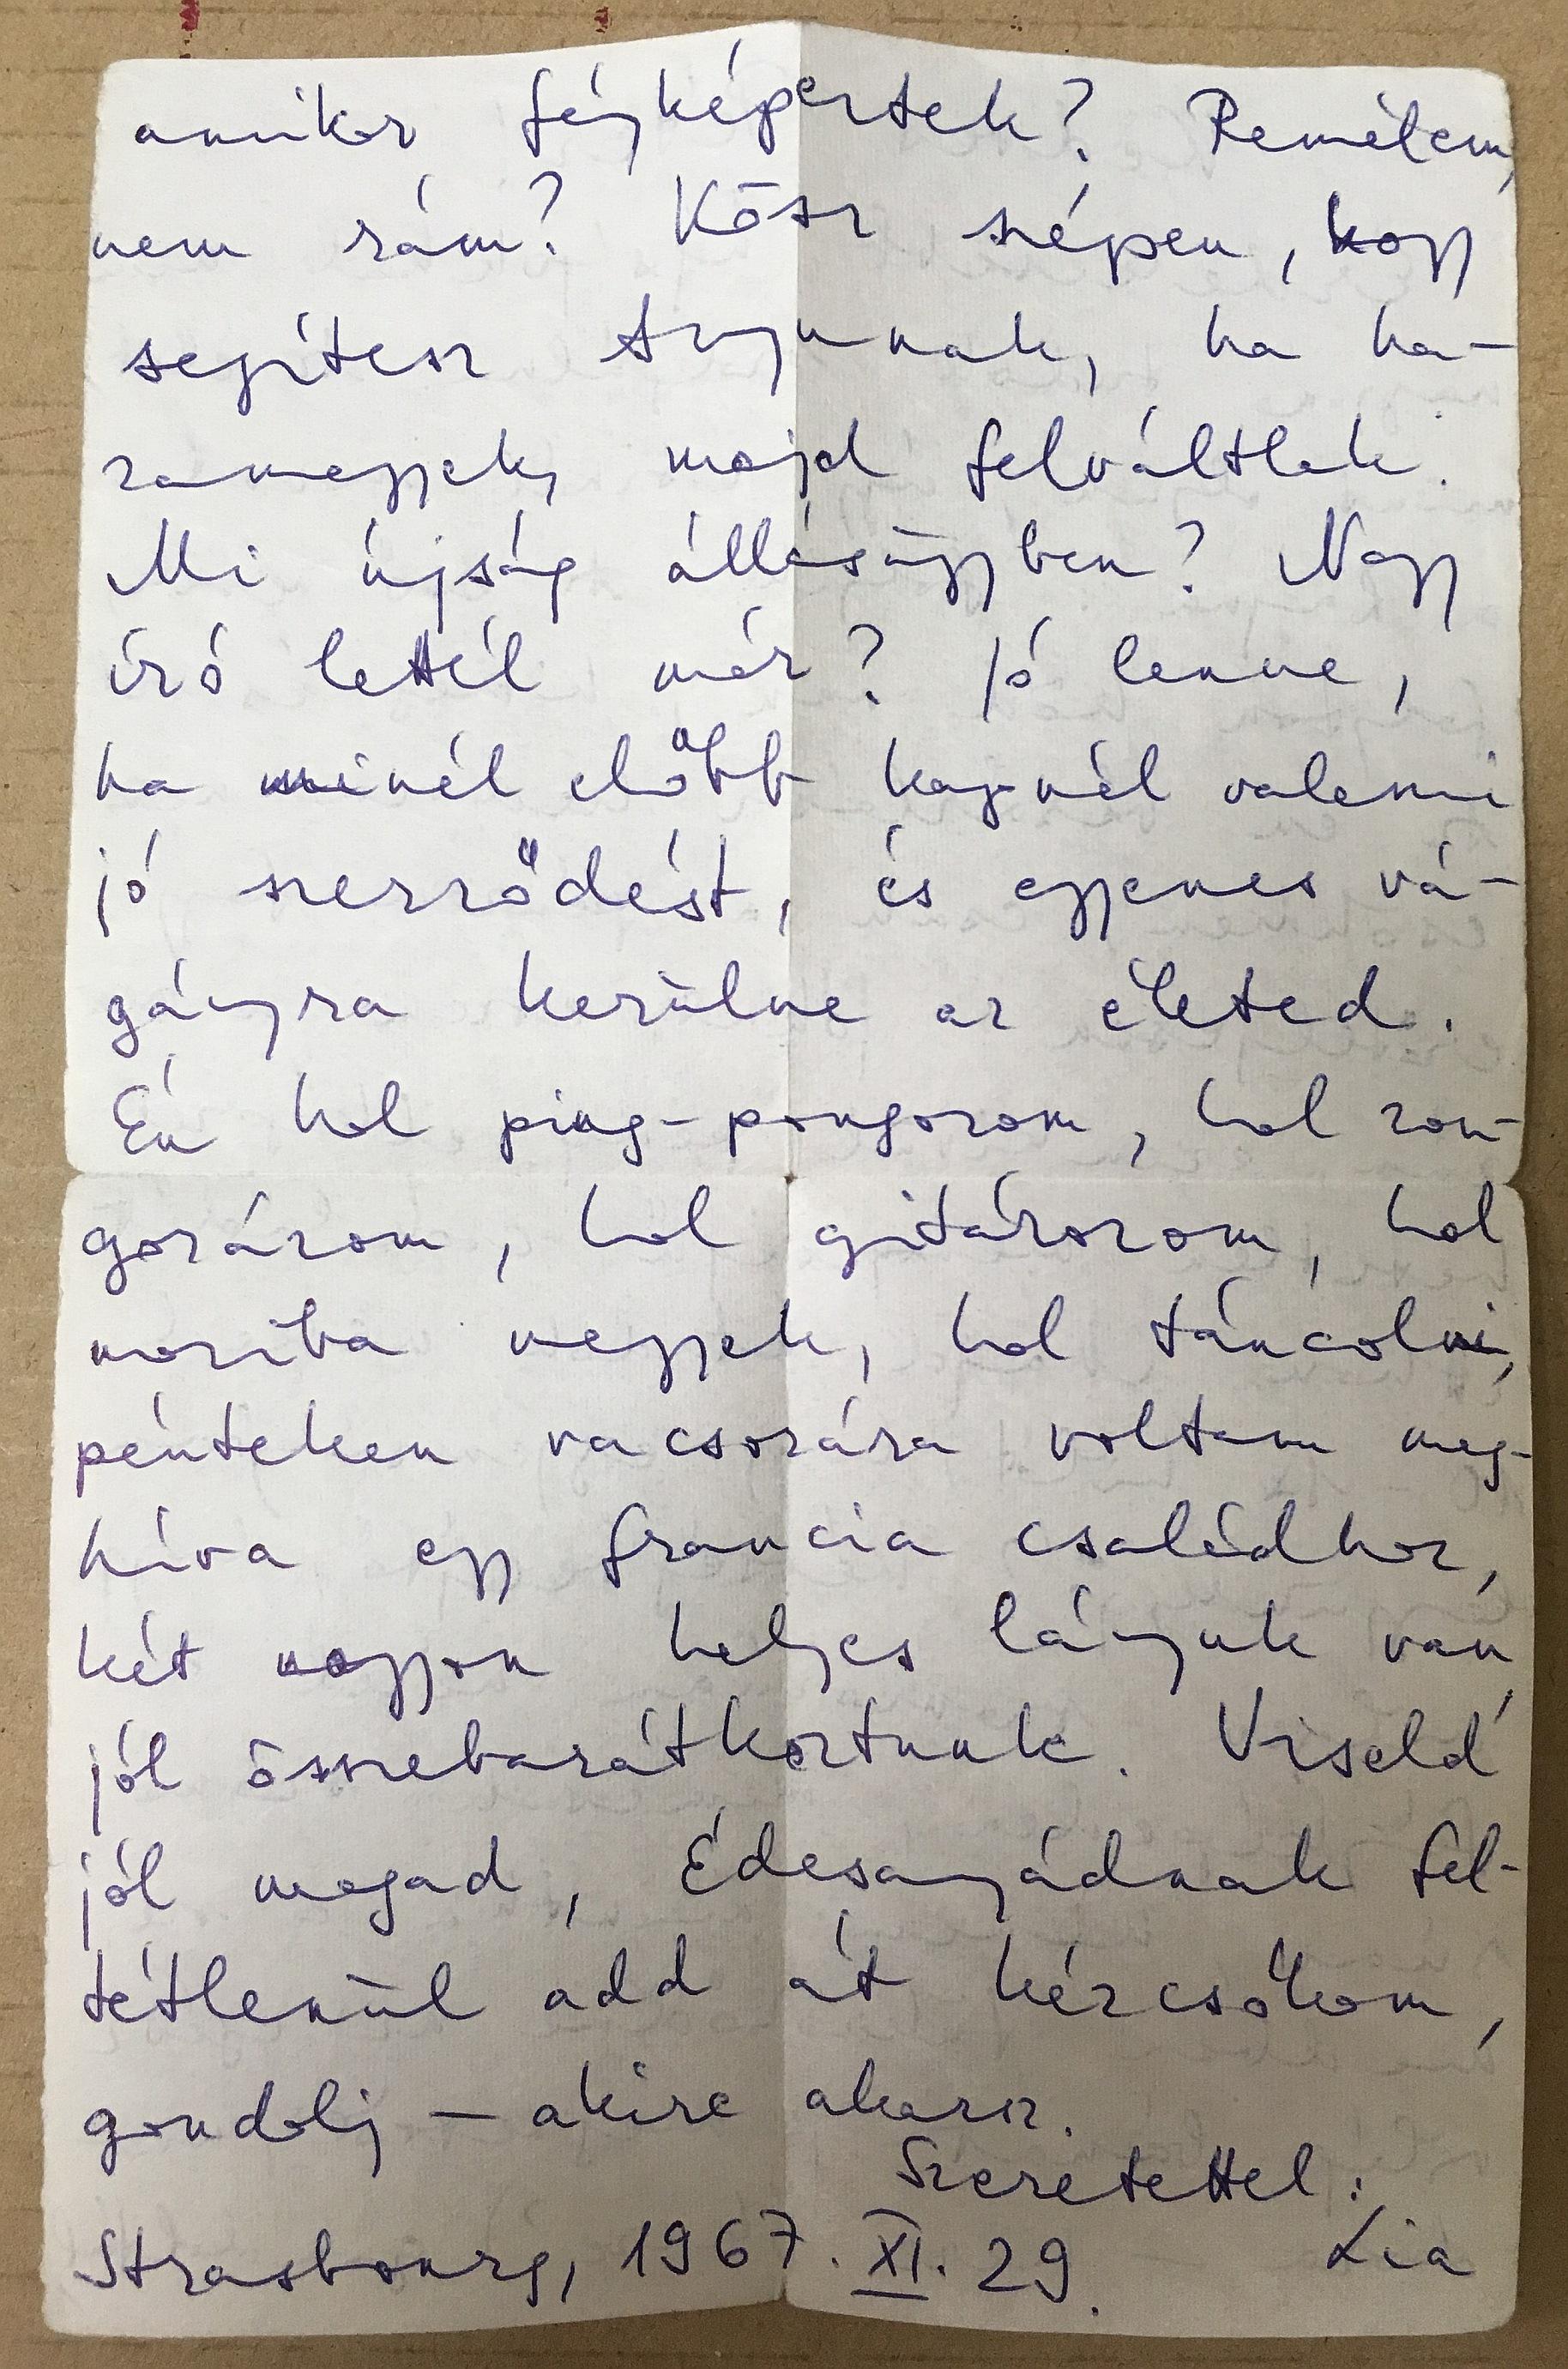 amikor fényképeztek? Remélem,
nem rám? Kösz szépen, hogy
segítesz anyunak, ha ha-
zamegyek, majd felváltlak.
Mi újság állásügyben? Nagy
író lettél már? Jó lenne,
ha minél előbb kapnál valami
jó szerződést, és egyenes vá-
gányra kerülne az életed.
Én hol ping-pongozom, hol zon-
gorázom, hol gitározom, hol
moziba megyek, hol táncolni,
pénteken vacsorára voltam meg-
híva egy francia családhoz,
két nagyon helyes lányuk van,
jól összebarátkoztunk. Viseld
jól magad, Édesanyádnak fel-
tétlenül add át kézcsókom,
gondolj – akire akarsz.
Szeretettel:
Strasbourg, 1967. XI. 29. Lia